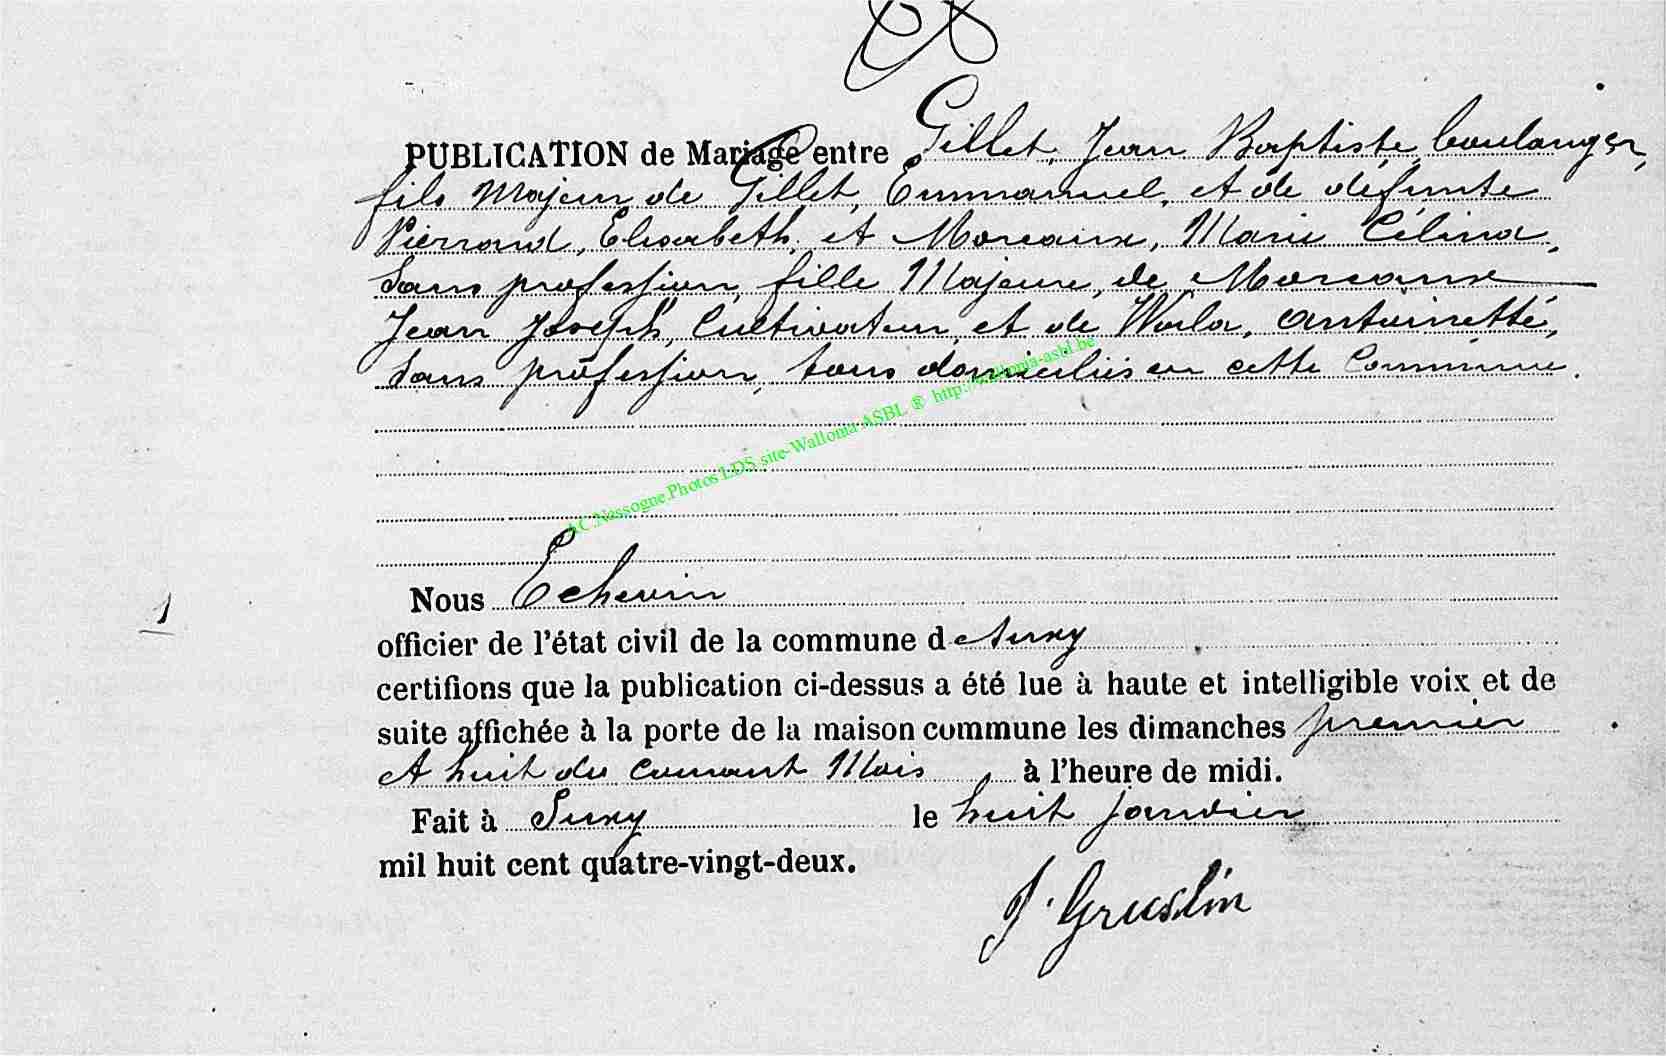 PUBLICATION de Mariage entre Gillet, Jean Baptiste, boulanger,
fils Majeur de Gillet, Emmanuel, et de défunte
Pierrard, Elisabeth, et Moreaux, Marie Célina,
Sans profession, fille Majeure, de Moreaux
Jean Joseph, Cultivateur, et de Warla, Antoinette,
Sans profession, tous domiciliés en cette Commune.
A.C.Nassogne.Photos LDS site-Wallonia ASBL ® http://wallonia-asbl.be
Nous Echevin
1
officier de l'état civil de la commune de Suxy
certifions que la publication ci-dessus a été lue à haute et intelligible voix et de
suite affichée à la porte de la maison commune les dimanches premier
et huit du courant Mois à l'heure de midi.
Fait à Suxy le huit janvier
mil huit cent quatre-vingt-deux.
J. Gruslin